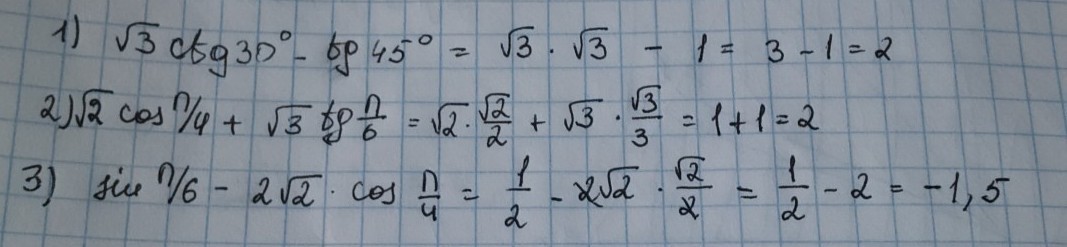 1) √3 ctg 30° - tg 45° = √3 · √3 - 1 = 3 - 1 = 2
2) √2 cos π/4 + √3 tg π/6 = √2 · √2/2 + √3 · √3/3 = 1 + 1 = 2
3) sin π/6 - 2√2 · cos π/4 = 1/2 - 2√2 · √2/2 = 1/2 - 2 = -1,5